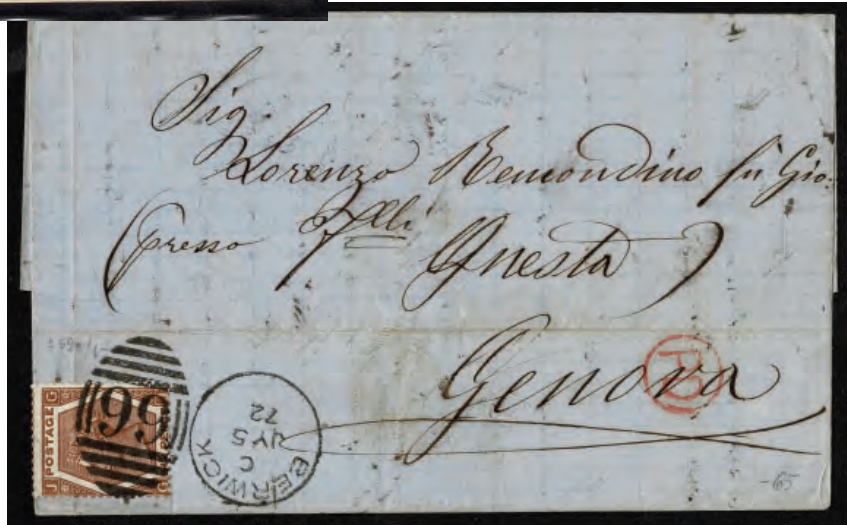 Sig.
Lorenzo Remondino fu Gio:
(presso Flli
Questa)
Genova
PD
99
BERWICK
C
JY 5
72
POSTAGE
J
G
-65